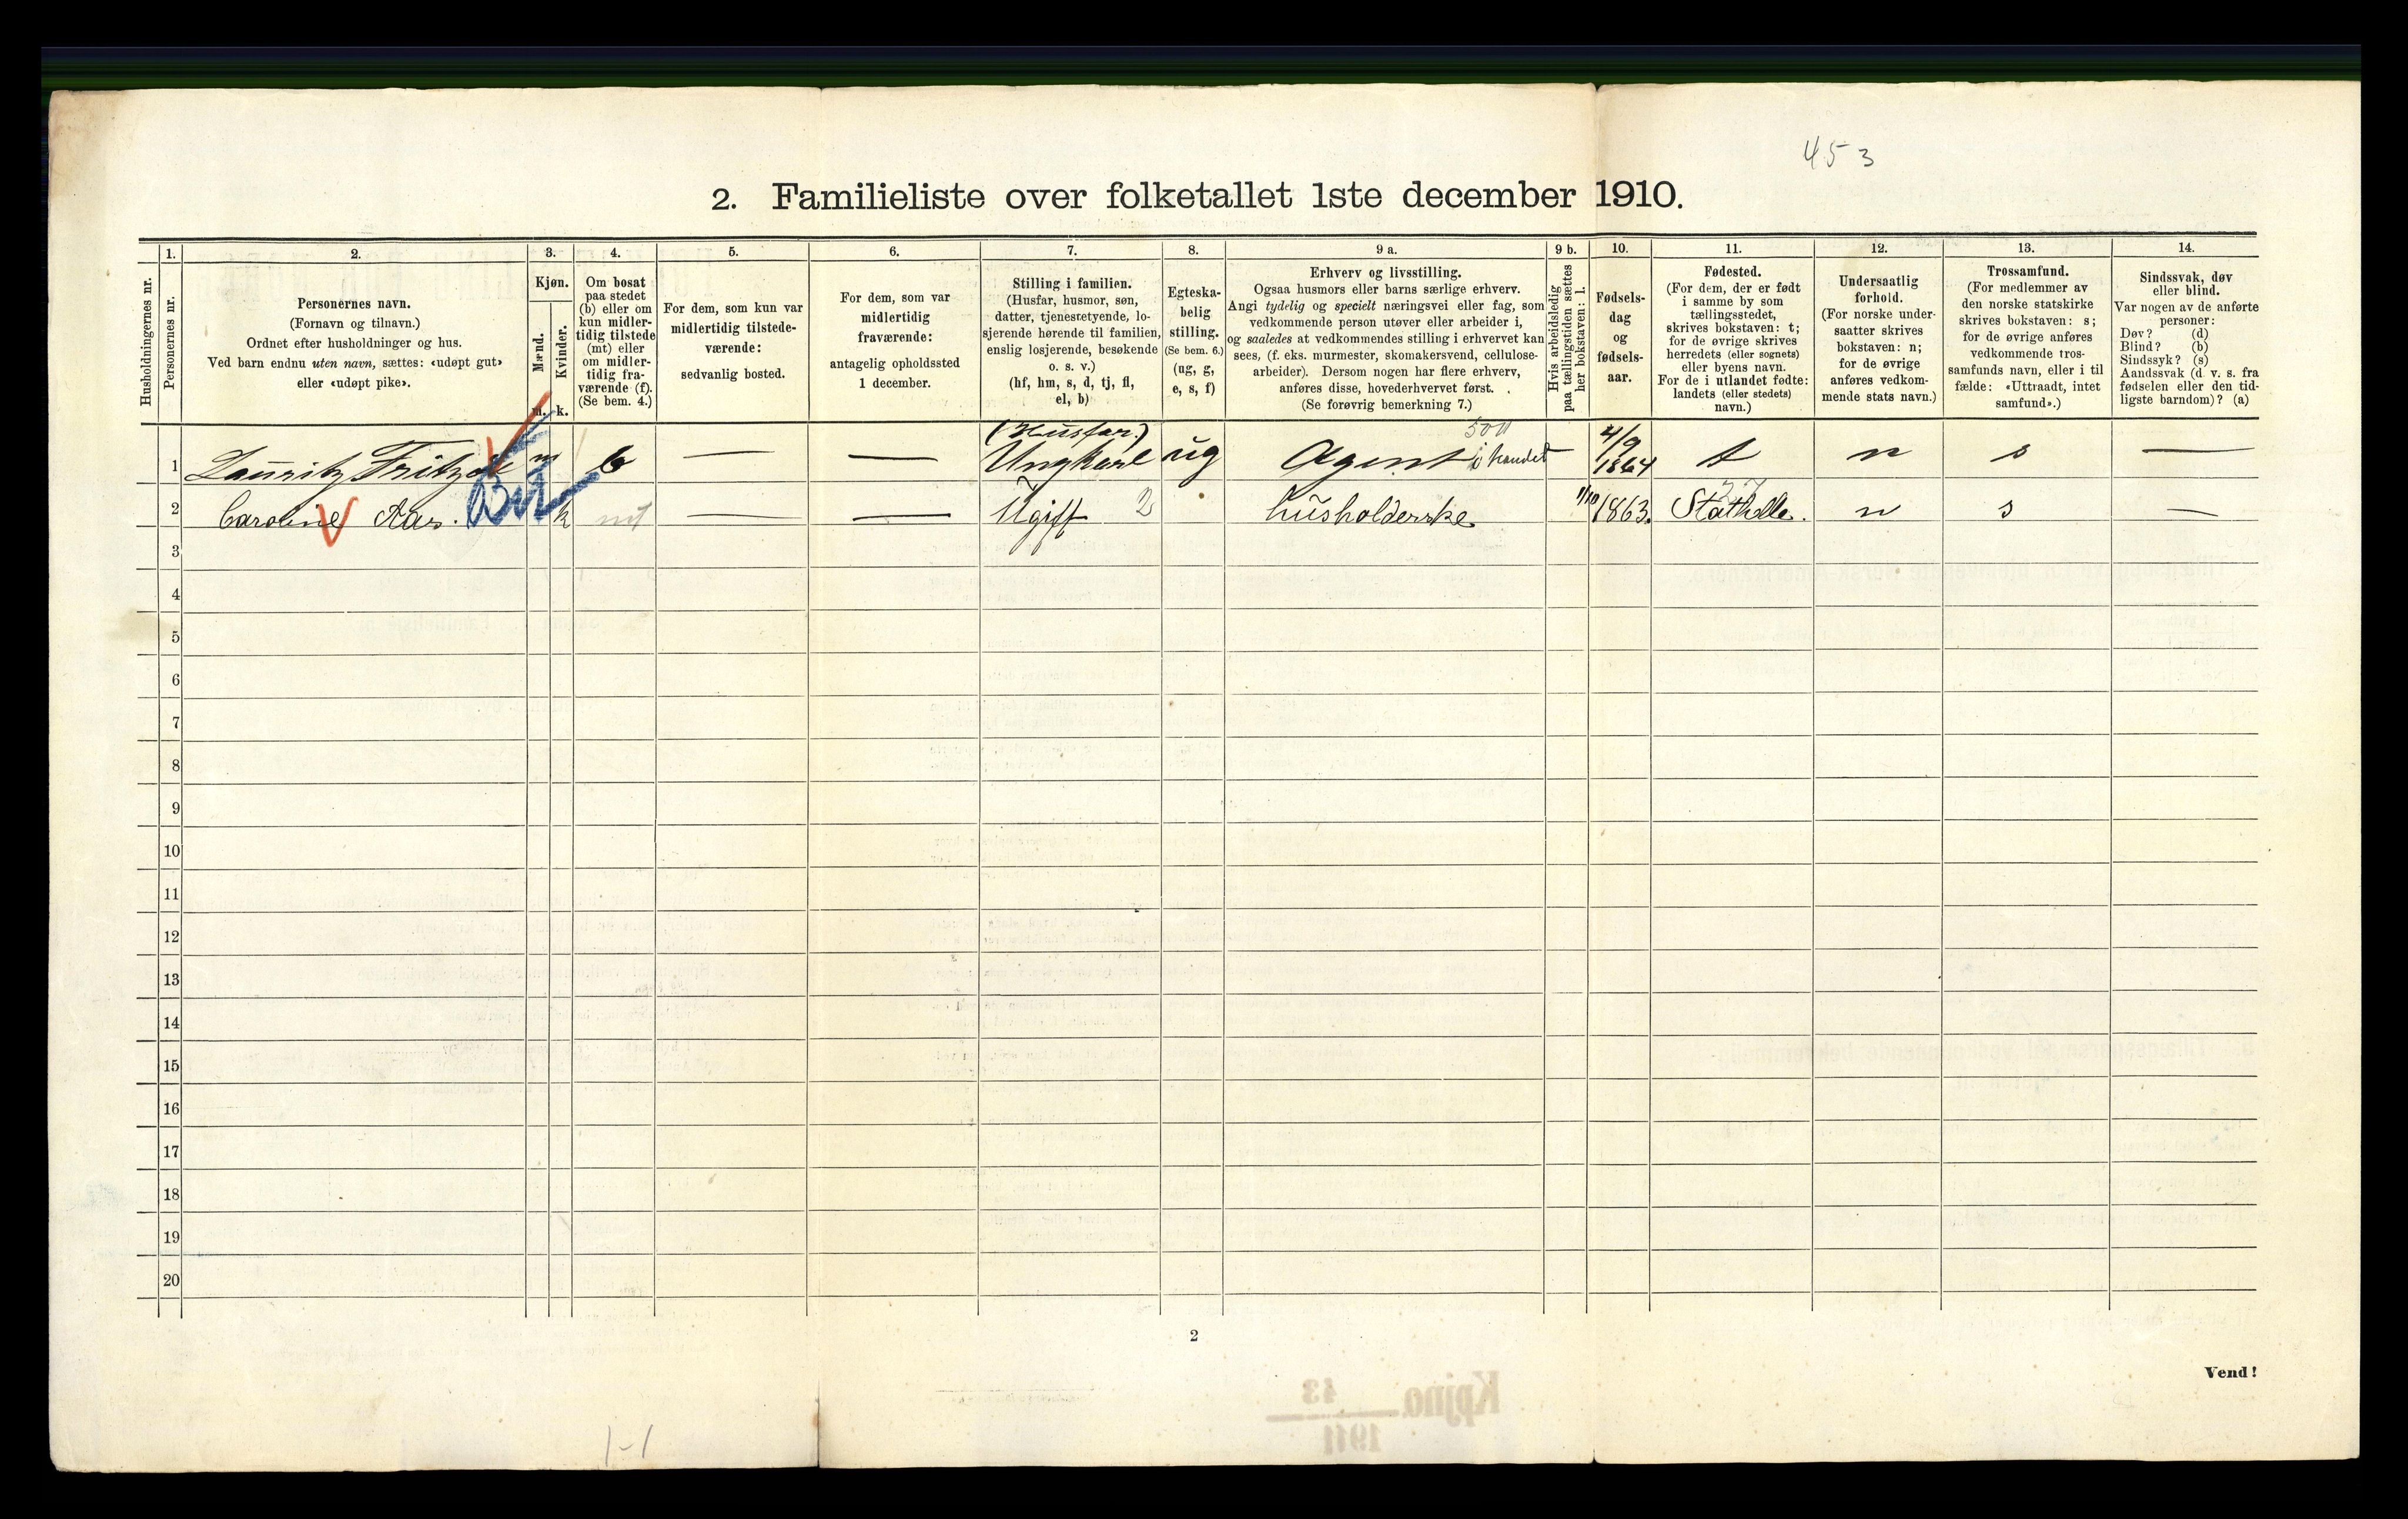 453
2. Familieliste over folketallet 1ste december 1910.
Husholdningernes nr.
1.
Personernes nr.
2.
Personernes navn.
(Fornavn og tilnavn.)
Ordnet efter husholdninger og hus.
Ved barn endnu uten navn, sættes: «udøpt gut»
eller «udøpt pike».
3.
Kjøn.
Mænd.
Kvinder.
m. k.
4.
Om bosat
paa stedet
(b) eller om
kun midler-
tidig tilstede
(mt) eller
om midler-
tidig fra-
værende (f).
(Se bem. 4.)
5.
For dem, som kun var
midlertidig tilstede-
værende:
sedvanlig bosted.
6.
For dem, som var
midlertidig
fraværende:
antagelig opholdssted
1 december.
7.
Stilling i familien.
(Husfar, husmor, søn,
datter, tjenestetyende, lo-
sjerende hørende til familien,
enslig losjerende, besøkende
o. s. v.)
(hf, hm, s, d, tj, fl,
el, b)
8.
Egteska-
belig
stilling.
(Se bem. 6.)
(ug, g,
e, s, f)
9 a.
Erhverv og livsstilling.
Ogsaa husmors eller barns særlige erhverv.
Angi tydelig og specielt næringsvei eller fag, som
vedkommende person utøver eller arbeider i,
og saaledes at vedkommendes stilling i erhvervet kan
sees, (f. eks. murmester, skomakersvend, cellulose-
arbeider). Dersom nogen har flere erhverv,
anføres disse, hovederhvervet først.
(Se forøvrig bemerkning 7.)
9 b.
Hvis arbeidsledig
paa tællingstiden sættes
her bokstaven: l.
10.
Fødsels-
dag
og
fødsels-
aar.
11.
Fødested.
(For dem, der er født
i samme by som
tællingsstedet,
skrives bokstaven: t;
for de øvrige skrives
herredets (eller sognets)
eller byens navn.
For de i utlandet fødte:
landets (eller stedets)
navn.)
12.
Undersaatlig
forhold.
(For norske under-
saatter skrives
bokstaven: n;
for de øvrige
anføres vedkom-
mende stats navn.)
13.
Trossamfund.
(For medlemmer av
den norske statskirke
skrives bokstaven: s;
for de øvrige anføres
vedkommende tros-
samfunds navn, eller i til
fælde: «Uttraadt, intet
samfund».)
14.
Sindssvak, døv
eller blind.
Var nogen av de anførte
personer:
Døv? (d)
Blind? (b)
Sindssyk? (s)
Aandssvak (d. v. s. fra
fødselen eller den tid-
ligste barndom)? (a)
1 Lauritz m b — — (Husfar.) Ungkarl ug Agent i handel 4/9 1864 t n s —
2 Caroline Aas. k mt — — Ugift 2 husholderske 1/10 1863. Stathelle. n s —
3
4
5
6
7
8
9
10
11
12
13
14
15
16
17
18
19
20
2
Vend!
Kpjno. 43
1911
1-1